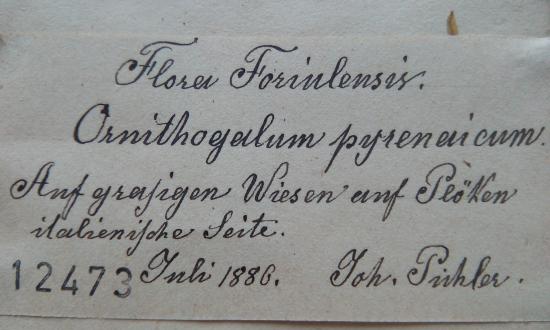 Flora Foriulensis.
Ornithogalum pyrenaicum.
Auf grasigen Wiesen auf Plöken
italienische Seite.
12473 Juli 1886. Joh. Pichler.